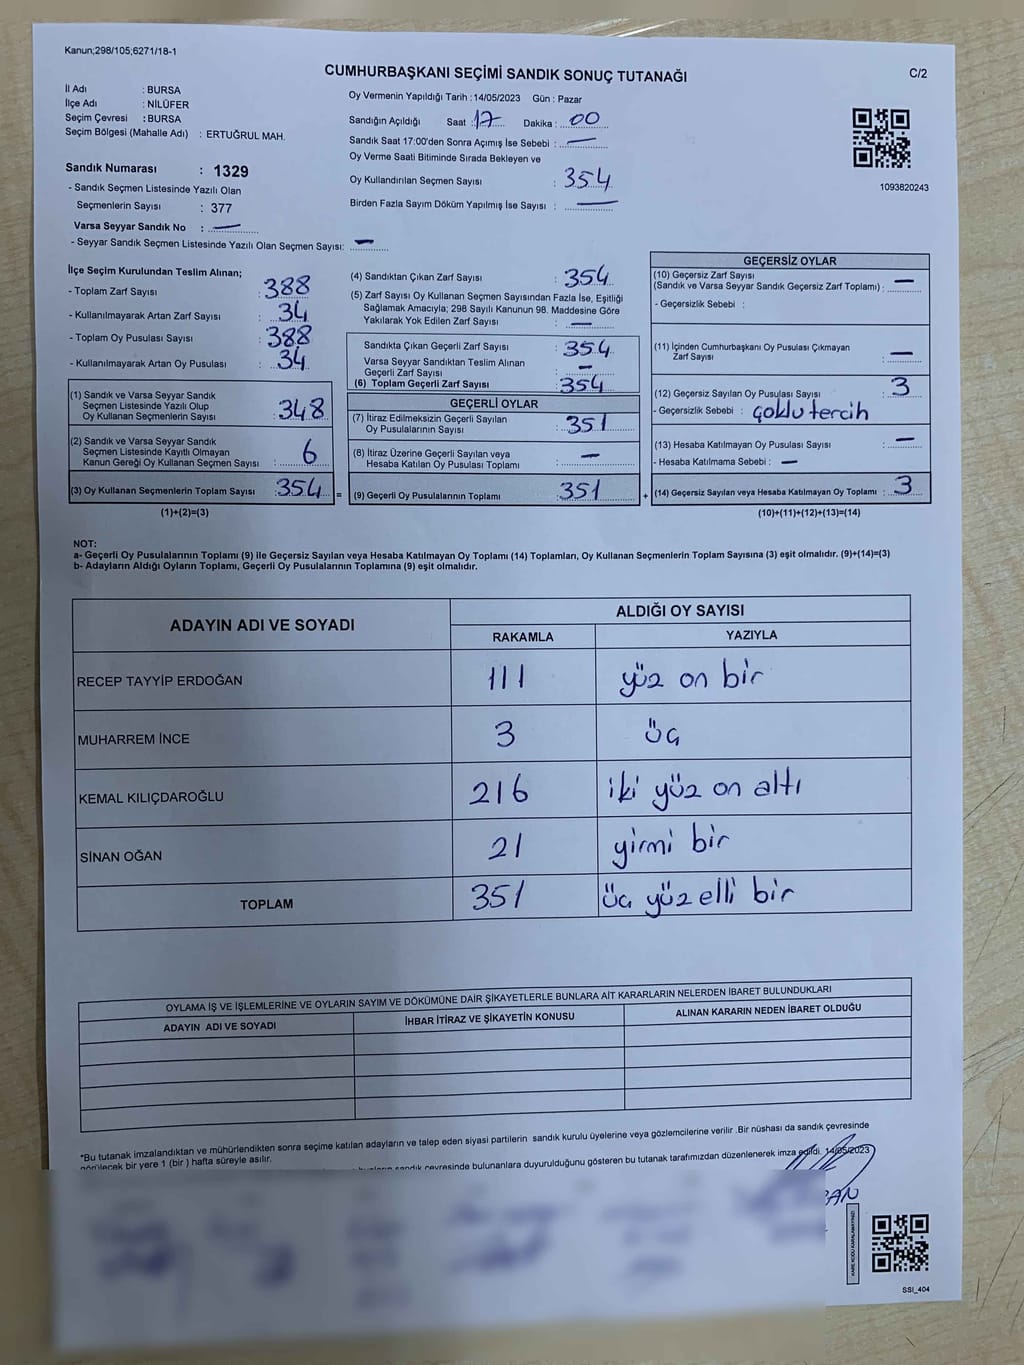 Kanun;298/105;6271/18-1
CUMHURBAŞKANI SEÇİMİ SANDIK SONUÇ TUTANAĞI
C/2
İl Adı : BURSA
İlçe Adı : NİLÜFER
Seçim Çevresi : BURSA
Seçim Bölgesi (Mahalle Adı) : ERTUĞRUL MAH.
Sandık Numarası : 1329
- Sandık Seçmen Listesinde Yazılı Olan
Seçmenlerin Sayısı : 377
Varsa Seyyar Sandık No : —
- Seyyar Sandık Seçmen Listesinde Yazılı Olan Seçmen Sayısı: —
Oy Vermenin Yapıldığı Tarih :14/05/2023 Gün : Pazar
Sandığın Açıldığı Saat : 17 Dakika : 00
Sandık Saat 17:00'den Sonra Açımış İse Sebebi : —
Oy Verme Saati Bitiminde Sırada Bekleyen ve
Oy Kullandırılan Seçmen Sayısı : 354
Birden Fazla Sayım Döküm Yapılmış İse Sayısı : —
1093820243
İlçe Seçim Kurulundan Teslim Alınan;
- Toplam Zarf Sayısı : 388
- Kullanılmayarak Artan Zarf Sayısı : 34
- Toplam Oy Pusulası Sayısı : 388
- Kullanılmayarak Artan Oy Pusulası : 34
(1) Sandık ve Varsa Seyyar Sandık
Seçmen Listesinde Yazılı Olup
Oy Kullanan Seçmenlerin Sayısı : 348
(2) Sandık ve Varsa Seyyar Sandık
Seçmen Listesinde Kayıtlı Olmayan
Kanun Gereği Oy Kullanan Seçmen Sayısı : 6
(3) Oy Kullanan Seçmenlerin Toplam Sayısı : 354 =
(1)+(2)=(3)
(4) Sandıktan Çıkan Zarf Sayısı : 354
(5) Zarf Sayısı Oy Kullanan Seçmen Sayısından Fazla İse, Eşitliği
Sağlamak Amacıyla; 298 Sayılı Kanunun 98. Maddesine Göre
Yakılarak Yok Edilen Zarf Sayısı : —
Sandıkta Çıkan Geçerli Zarf Sayısı : 354
Varsa Seyyar Sandıktan Teslim Alınan
Geçerli Zarf Sayısı : —
(6) Toplam Geçerli Zarf Sayısı : 354
GEÇERLİ OYLAR
(7) İtiraz Edilmeksizin Geçerli Sayılan
Oy Pusulalarının Sayısı : 351
(8) İtiraz Üzerine Geçerli Sayılan veya
Hesaba Katılan Oy Pusulası Toplamı : —
(9) Geçerli Oy Pusulalarının Toplamı : 351 +
GEÇERSİZ OYLAR
(10) Geçersiz Zarf Sayısı
(Sandık ve Varsa Seyyar Sandık Geçersiz Zarf Toplamı) : —
- Geçersizlik Sebebi :
(11) İçinden Cumhurbaşkanı Oy Pusulası Çıkmayan
Zarf Sayısı : —
(12) Geçersiz Sayılan Oy Pusulası Sayısı : 3
- Geçersizlik Sebebi : çoklu tercih
(13) Hesaba Katılmayan Oy Pusulası Sayısı : —
- Hesaba Katılmama Sebebi : —
(14) Geçersiz Sayılan veya Hesaba Katılmayan Oy Toplamı : 3
(10)+(11)+(12)+(13)=(14)
NOT:
a- Geçerli Oy Pusulalarının Toplamı (9) ile Geçersiz Sayılan veya Hesaba Katılmayan Oy Toplamı (14) Toplamları, Oy Kullanan Seçmenlerin Toplam Sayısına (3) eşit olmalıdır. (9)+(14)=(3)
b- Adayların Aldığı Oyların Toplamı, Geçerli Oy Pusulalarının Toplamına (9) eşit olmalıdır.
ADAYIN ADI VE SOYADI ALDIĞI OY SAYISI
RAKAMLA YAZIYLA
RECEP TAYYİP ERDOĞAN 111 yüz on bir
MUHARREM İNCE 3 üç
KEMAL KILIÇDAROĞLU 216 iki yüz on altı
SİNAN OĞAN 21 yirmi bir
TOPLAM 351 üç yüz elli bir
OYLAMA İŞ VE İŞLEMLERİNE VE OYLARIN SAYIM VE DÖKÜMÜNE DAİR ŞİKAYETLERLE BUNLARA AİT KARARLARIN NELERDEN İBARET BULUNDUKLARI
ADAYIN ADI VE SOYADI İHBAR İTİRAZ VE ŞİKAYETİN KONUSU ALINAN KARARIN NEDEN İBARET OLDUĞU
*Bu tutanak imzalandıktan ve mühürlendikten sonra seçime katılan adayların ve talep eden siyasi partilerin sandık kurulu üyelerine veya gözlemcilerine verilir .Bir nüshası da sandık çevresinde
görülecek bir yere 1 (bir ) hafta süreyle asılır.
sandık çevresinde bulunanlara duyurulduğunu gösteren bu tutanak tarafımızdan düzenlenerek imza edildi. 14/05/2023
KARE KODU KARALAMAYINIZ!
SSI_404